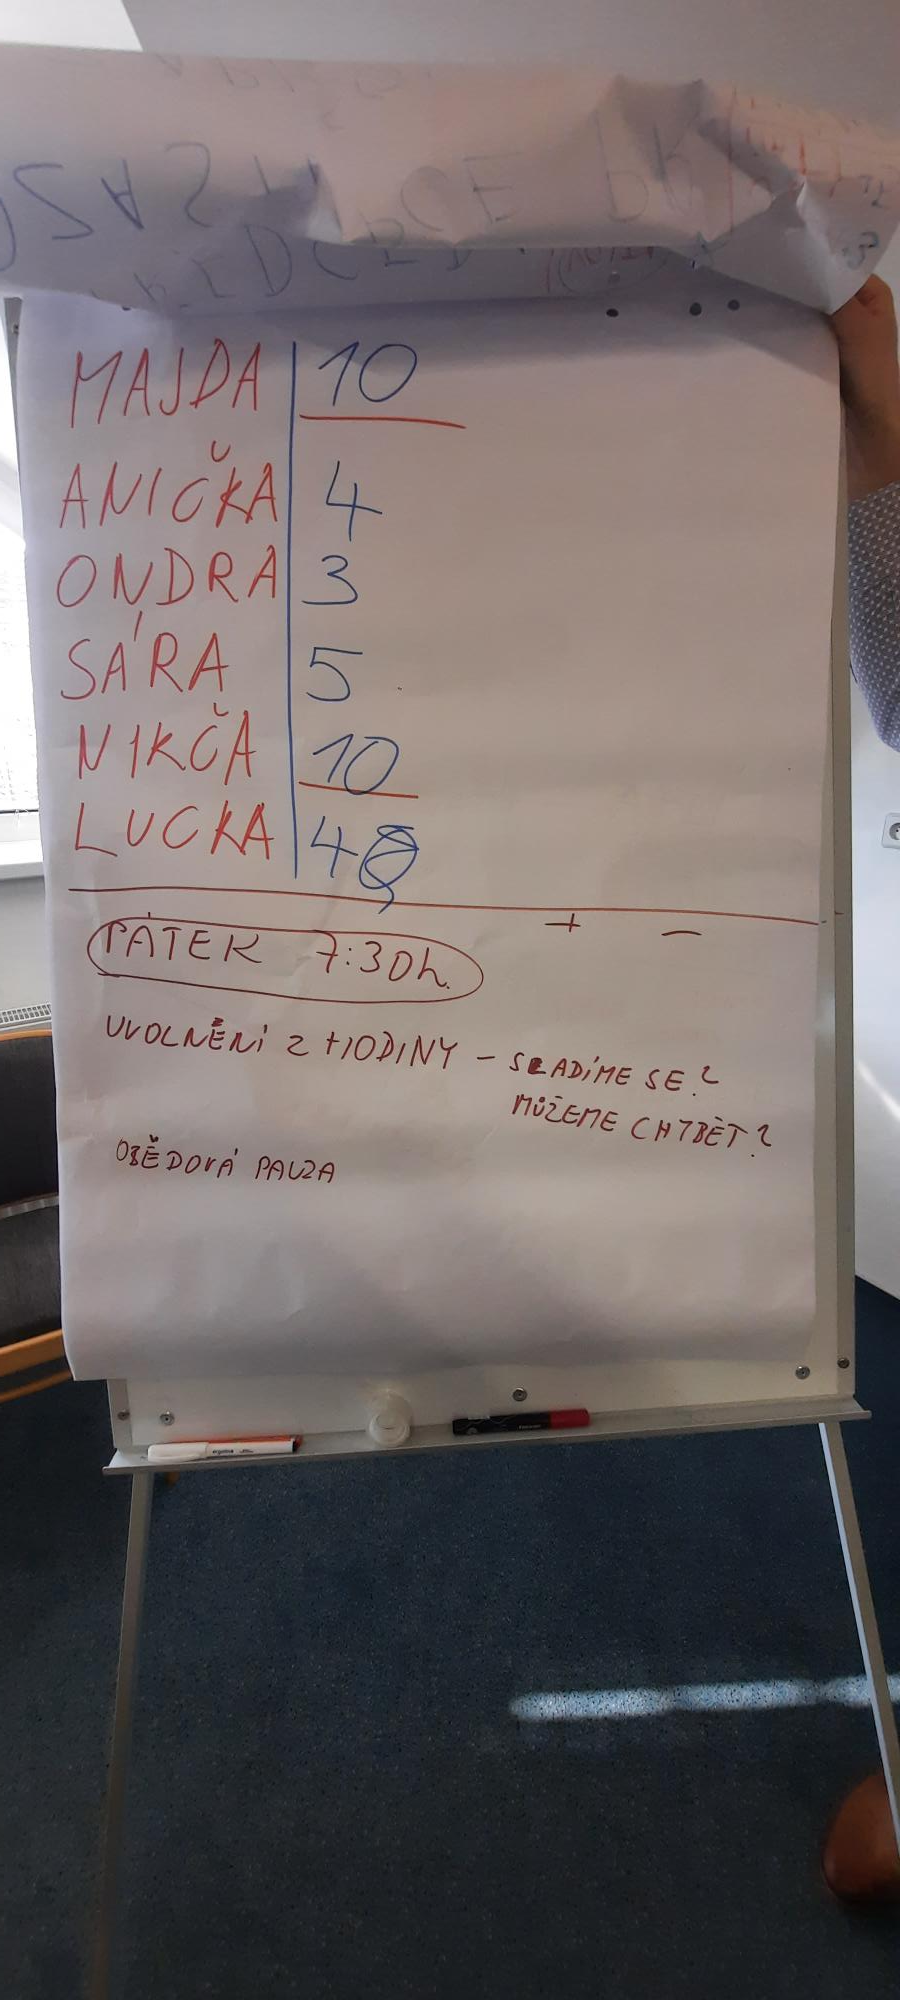 MAJDA 10
ANIČKA 4
ONDRA 3
SÁRA 5
NIKČA 10
LUCKA 4
+ –
PÁTEK 7:30h.
UVOLNĚNÍ Z HODINY – SLADÍME SE?
MŮŽEME CHYBĚT?
OBĚDOVÁ PAUZA